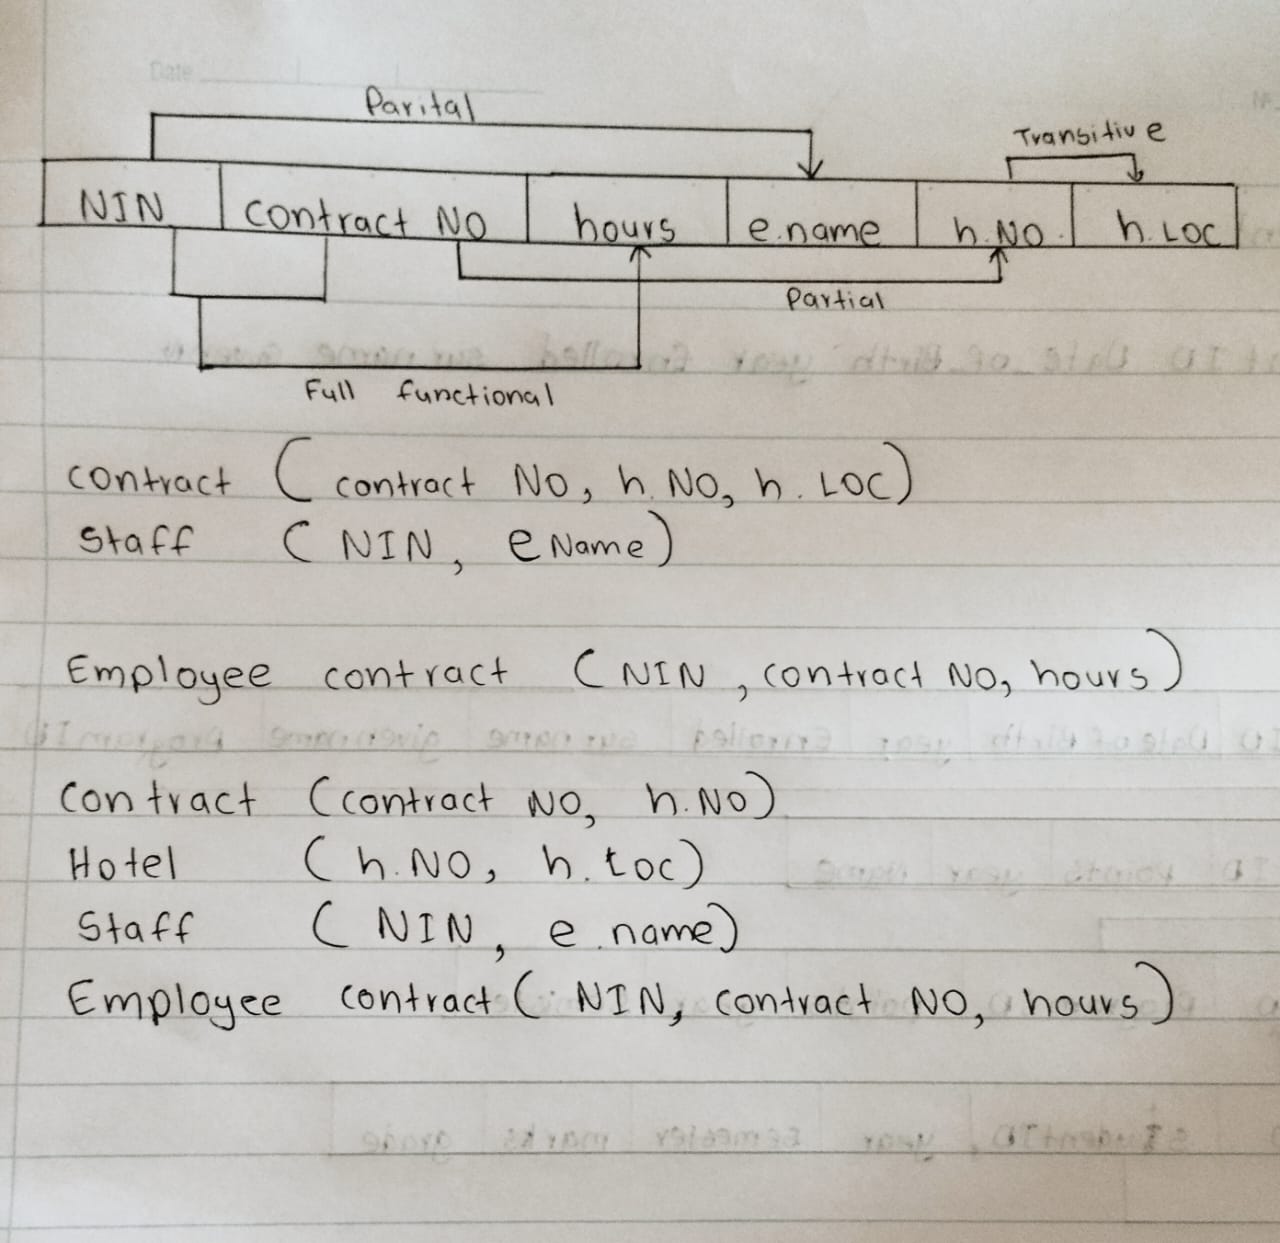 Date
Parital
Transitive
NIN contract NO hours e.name h.NO. h.LOC
Partial
Full functional
contract (contract NO, h.NO, h.LOC)
Staff (NIN, eName)
Employee contract (NIN, contract NO, hours)
Contract (contract NO, h.NO)
Hotel (h.NO, h.Loc)
Staff (NIN, e.name)
Employee contract (NIN, contract NO, hours)